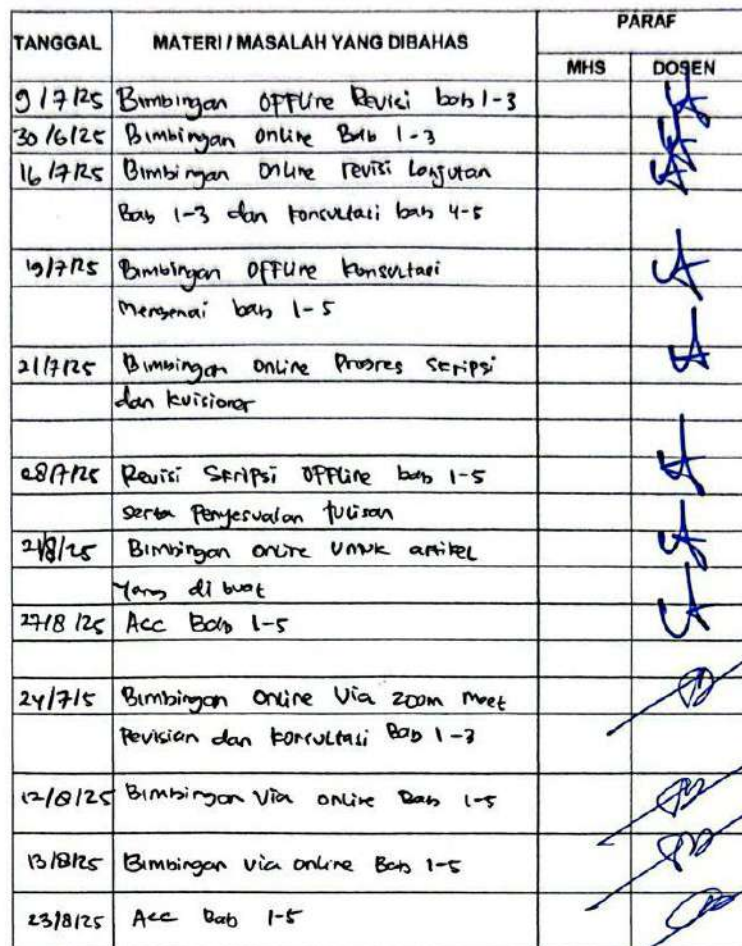 TANGGAL MATERI / MASALAH YANG DIBAHAS PARAF
MHS DOSEN
9/7/25 Bimbingan OFFLine Revisi bab 1-3
30/6/25 Bimbingan online Bab 1-3
16/7/25 Bimbingan online revisi Lanjutan
Bab 1-3 dan konsultasi bab 4-5
19/7/25 Bimbingan OFFLine konsultasi
Mengenai bab 1-5
21/7/25 Bimbingan online Progres skripsi
dan kuisioner
28/7/25 Revisi Skripsi OFFLine bab 1-5
serta Penyesuaian tulisan
21/8/25 Bimbingan online untuk artikel
Yang di buat
27/8/25 Acc Bab 1-5
24/7/5 Bimbingan online Via zoom meet
Revisian dan konsultasi Bab 1-3
12/8/25 Bimbingan Via online Bab 1-5
13/8/25 Bimbingan via online Bab 1-5
23/8/25 Acc Bab 1-5